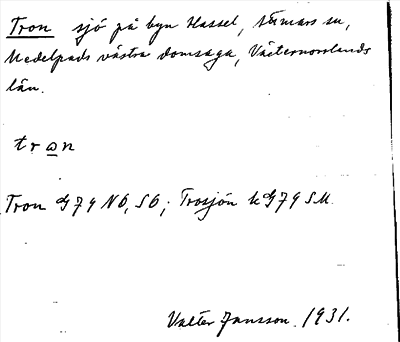 Tron sjö på byn Hassel, Stöde sn,
Medelpads västra domsaga, Västernorrlands
län.
tron
Tron G79 NÖ, SÖ; Trosjön k G79 SM.
Valter Jansson 1931.